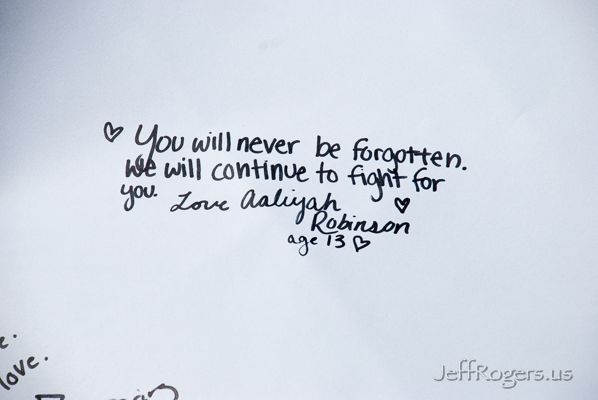 ♡ You will never be forgotten.
we will continue to fight for
you. Love Aaliyah ♡
Robinson
age 13 ♡
love.
JeffRogers.us